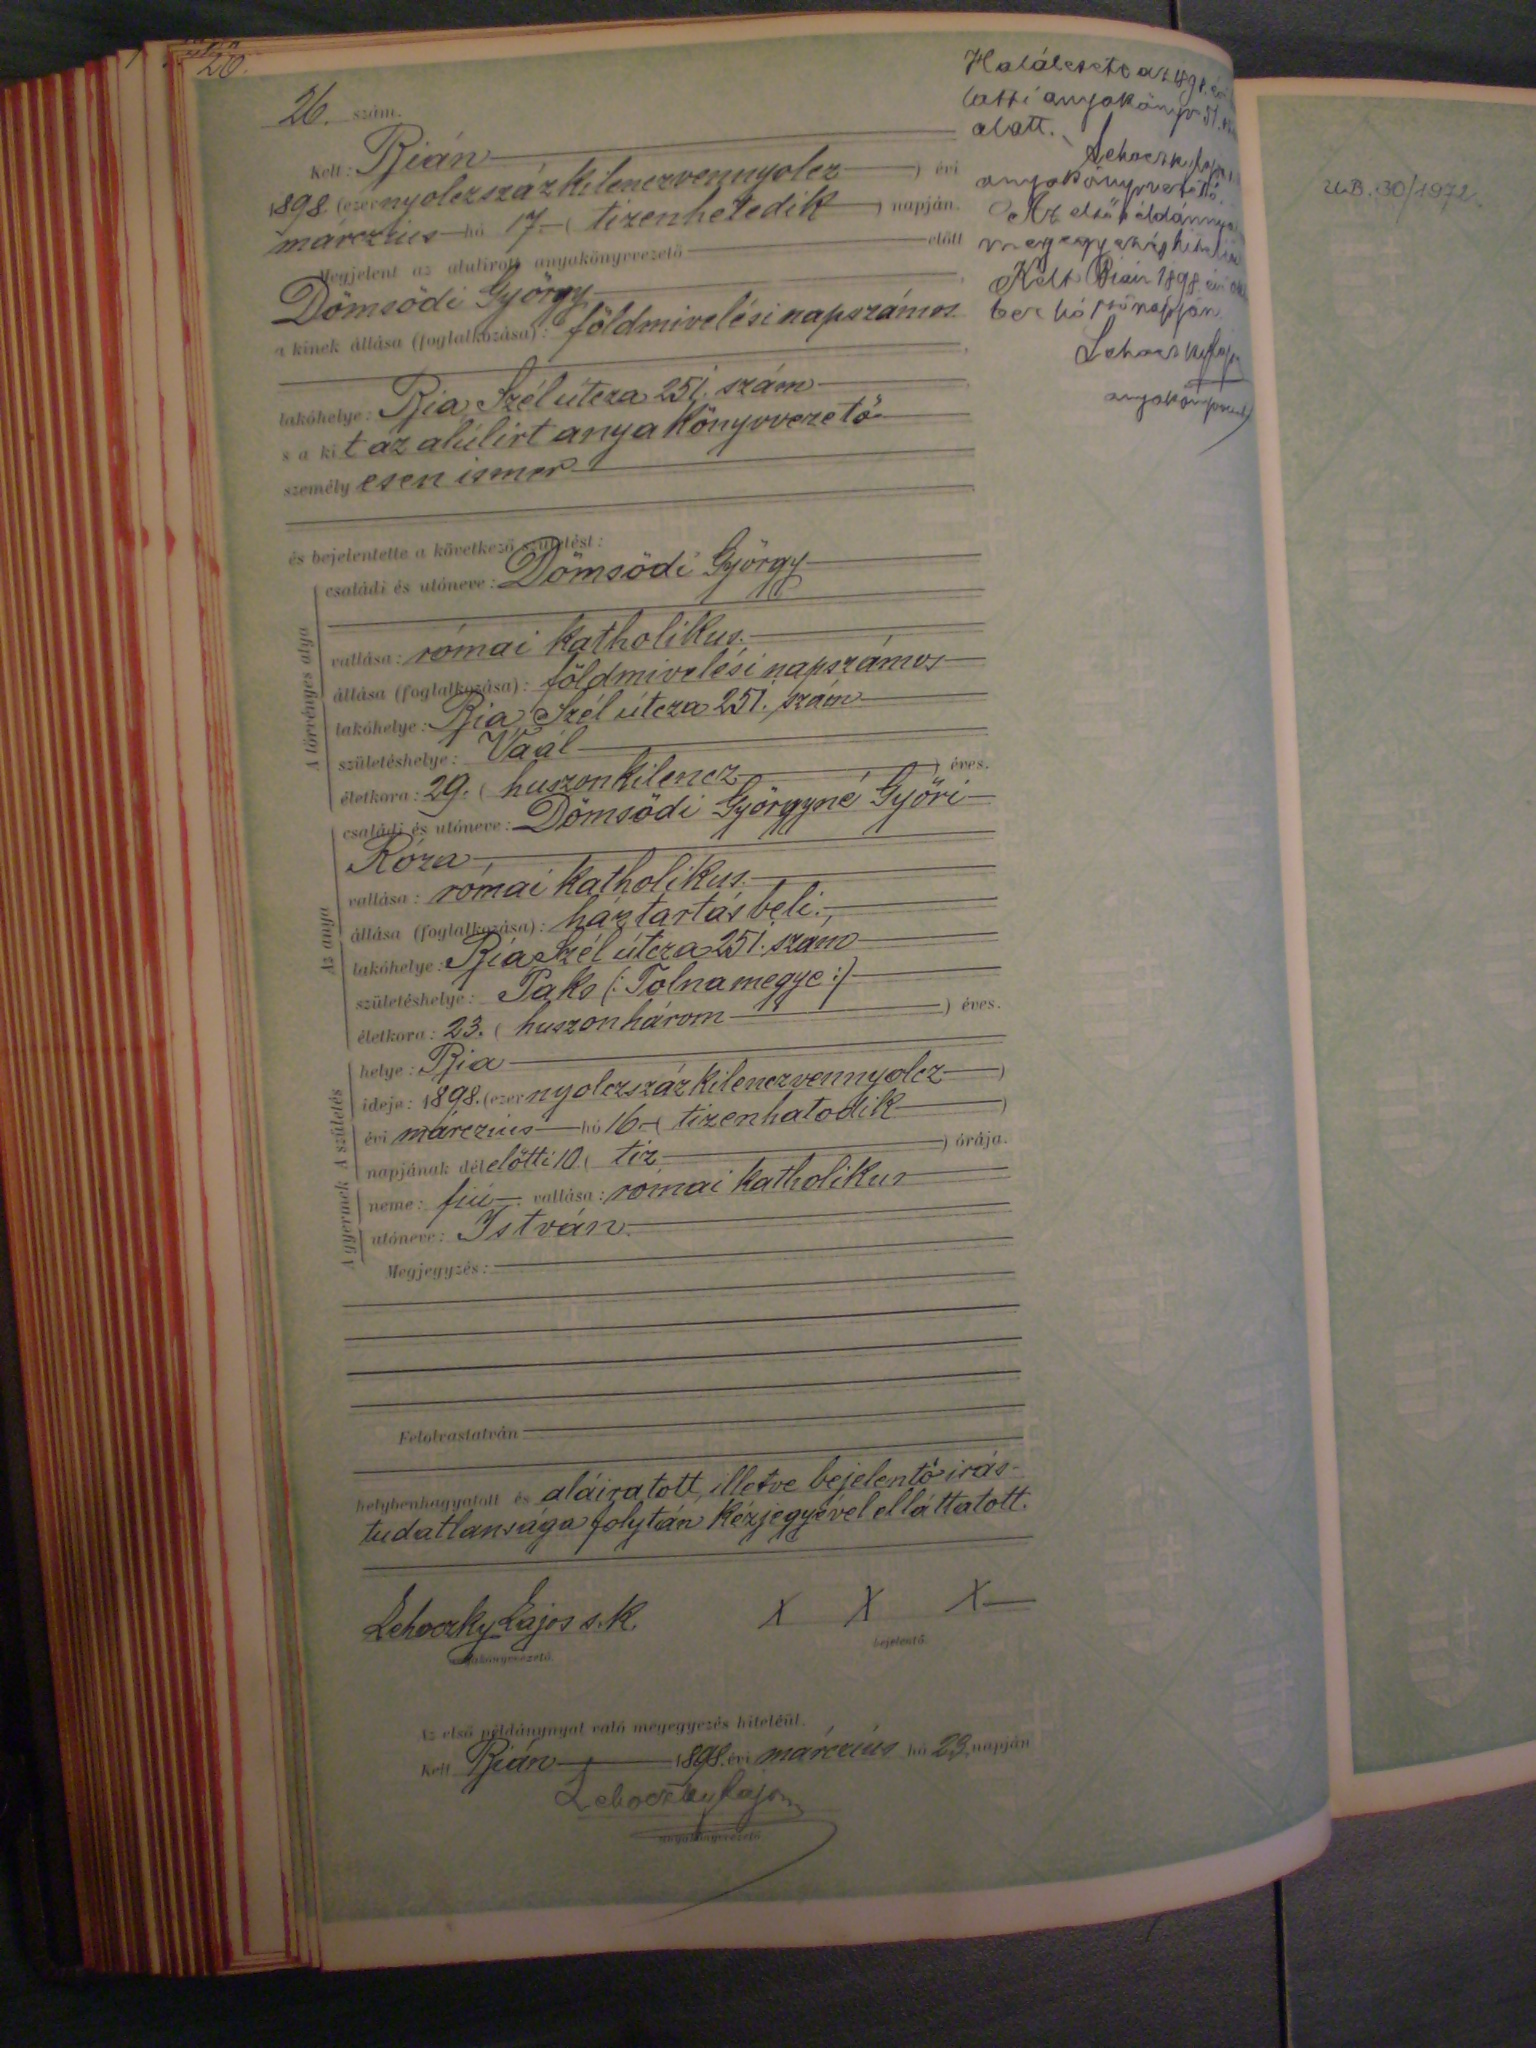 20.
26. szám.
Kelt: Bián
1898. (ezer nyolczszáz kilenczvennyolcz) évi
márczius hó 17. (tizenhetedik) napján.
Megjelent az alulírott anyakönyvvezető előtt
Dömsödi György,
a kinek állása (foglalkozása): földmivelési napszámos
lakóhelye: Bia, Szél útcza 251. szám
s a kit az alúlirt anyakönyvvezető
személyesen ismer
és bejelentette a következő születést:
A törvényes atya
családi és utóneve: Dömsödi György
vallása: római katholikus.
állása (foglalkozása): földmivelési napszámos
lakóhelye: Bia, Szél útcza 251. szám
születéshelye: Vaál
életkora: 29. (huszonkilencz) éves.
Az anya
családi és utóneve: Dömsödi Györgyné Győri
Róza
vallása: római katholikus.
állása (foglalkozása): háztartásbeli.,
lakóhelye: Bia Szél útcza 251. szám
születéshelye: Paks (: Tolnamegye :)
életkora: 23. (huszonhárom) éves.
A születés
helye: Bia
ideje: 1898. (ezer nyolczszáz kilenczvennyolcz)
évi márczius hó 16. (tizenhatodik)
napjának délelőtti 10. (tiz) órája.
A gyermek
neme: fiú vallása: római katholikus
utóneve: István.
Megjegyzés:
Felolvastatván
helybenhagyatott és aláiratott, illetve bejelentő irás-
tudatlansága folytán kézjegyével elláttatott.
Lehoczky Lajos s.k. X X X
anyakönyvvezető. bejelentő.
Az első példánynyal való megegyezés hiteléül.
Kelt Bián 1898. évi márczius hó 23. napján
Lehoczky Lajos
anyakönyvvezető
Halálesete az évi
anyakönyv 51.
alatt.
Lehoczky Lajos
anyakönyvvezető.
Az első példánnyal
megegyezés hiteléül
Kelt Bián 1898. évi
ber hó napján
Lehoczky Lajos
anyakönyvvezető
U.B. 30/1972.